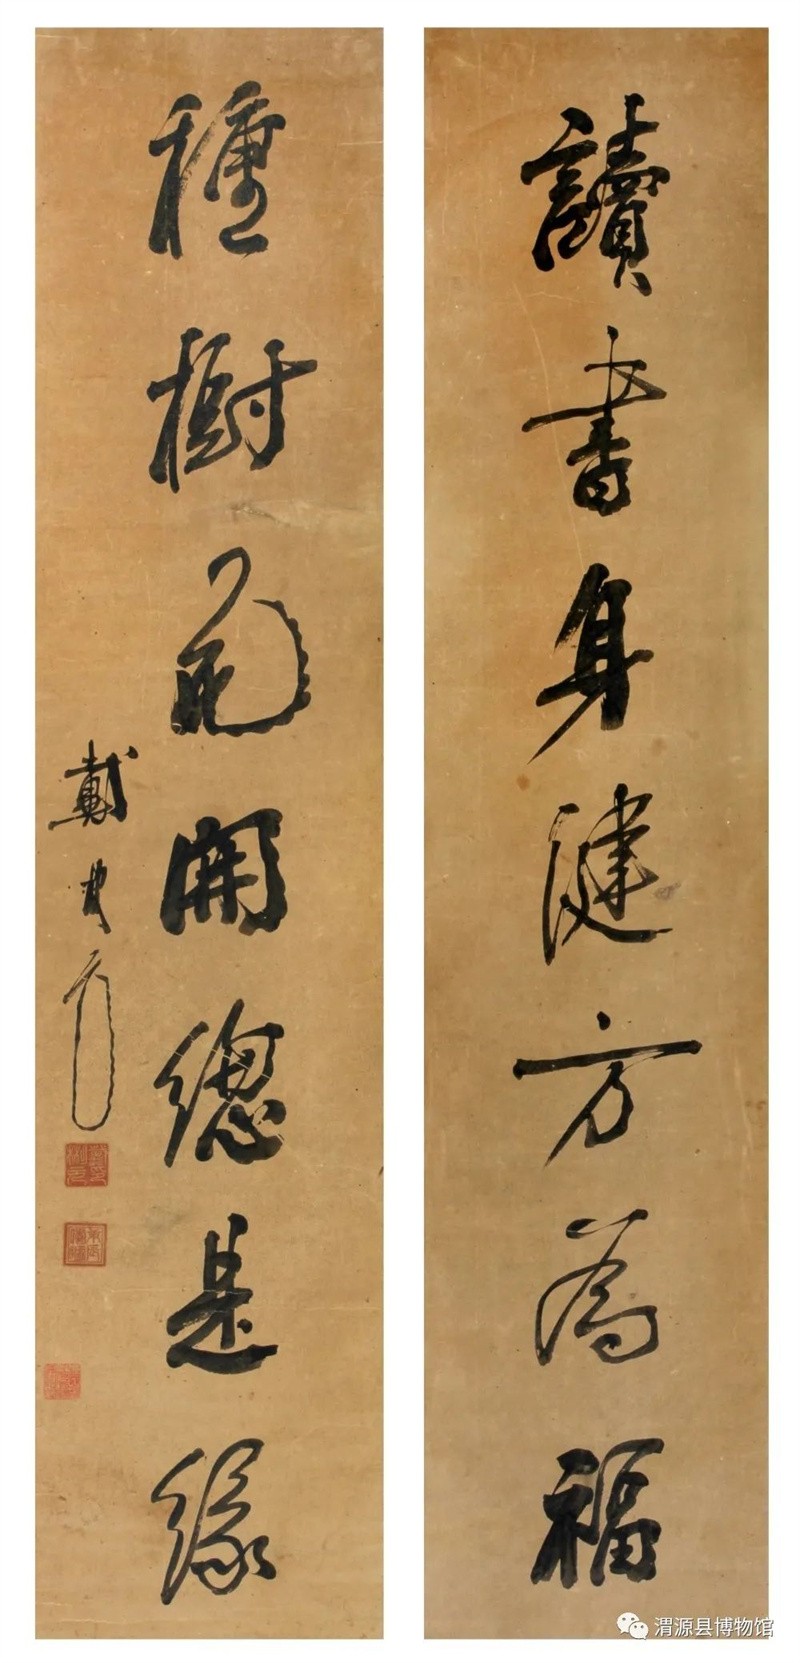 讀書身健方為福
種樹花開總是緣
戴
渭源县博物馆